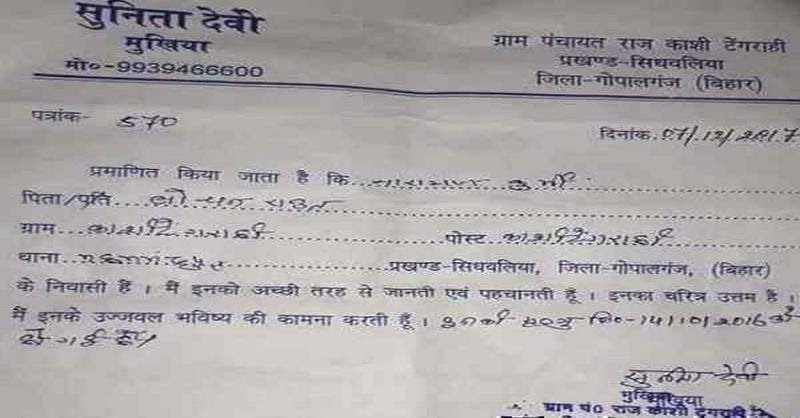 सुनिता देवी
मुखिया
मो०-9939466600
ग्राम पंचायत राज काशी टेंगराही
प्रखण्ड-सिधवलिया
जिला-गोपालगंज (बिहार)
पत्रांक- 570
दिनांक. 07/12/2017
प्रमाणित किया जाता है कि
पिता/पति
ग्राम... काशी टेंगराही पोस्ट काशी टेंगराही
थाना प्रखण्ड-सिधवलिया, जिला-गोपालगंज, (बिहार)
के निवासी हैं । मैं इनको अच्छी तरह से जानती एवं पहचानती हूँ । इनका चरित्र उत्तम है ।
मैं इनके उज्जवल भविष्य की कामना करती हूँ । इनकी मृत्यु दि०-14/10/2016 को
हो गई
सुनिता देवी
मुखिया
ग्राम पं० राज काशी टेंगराही